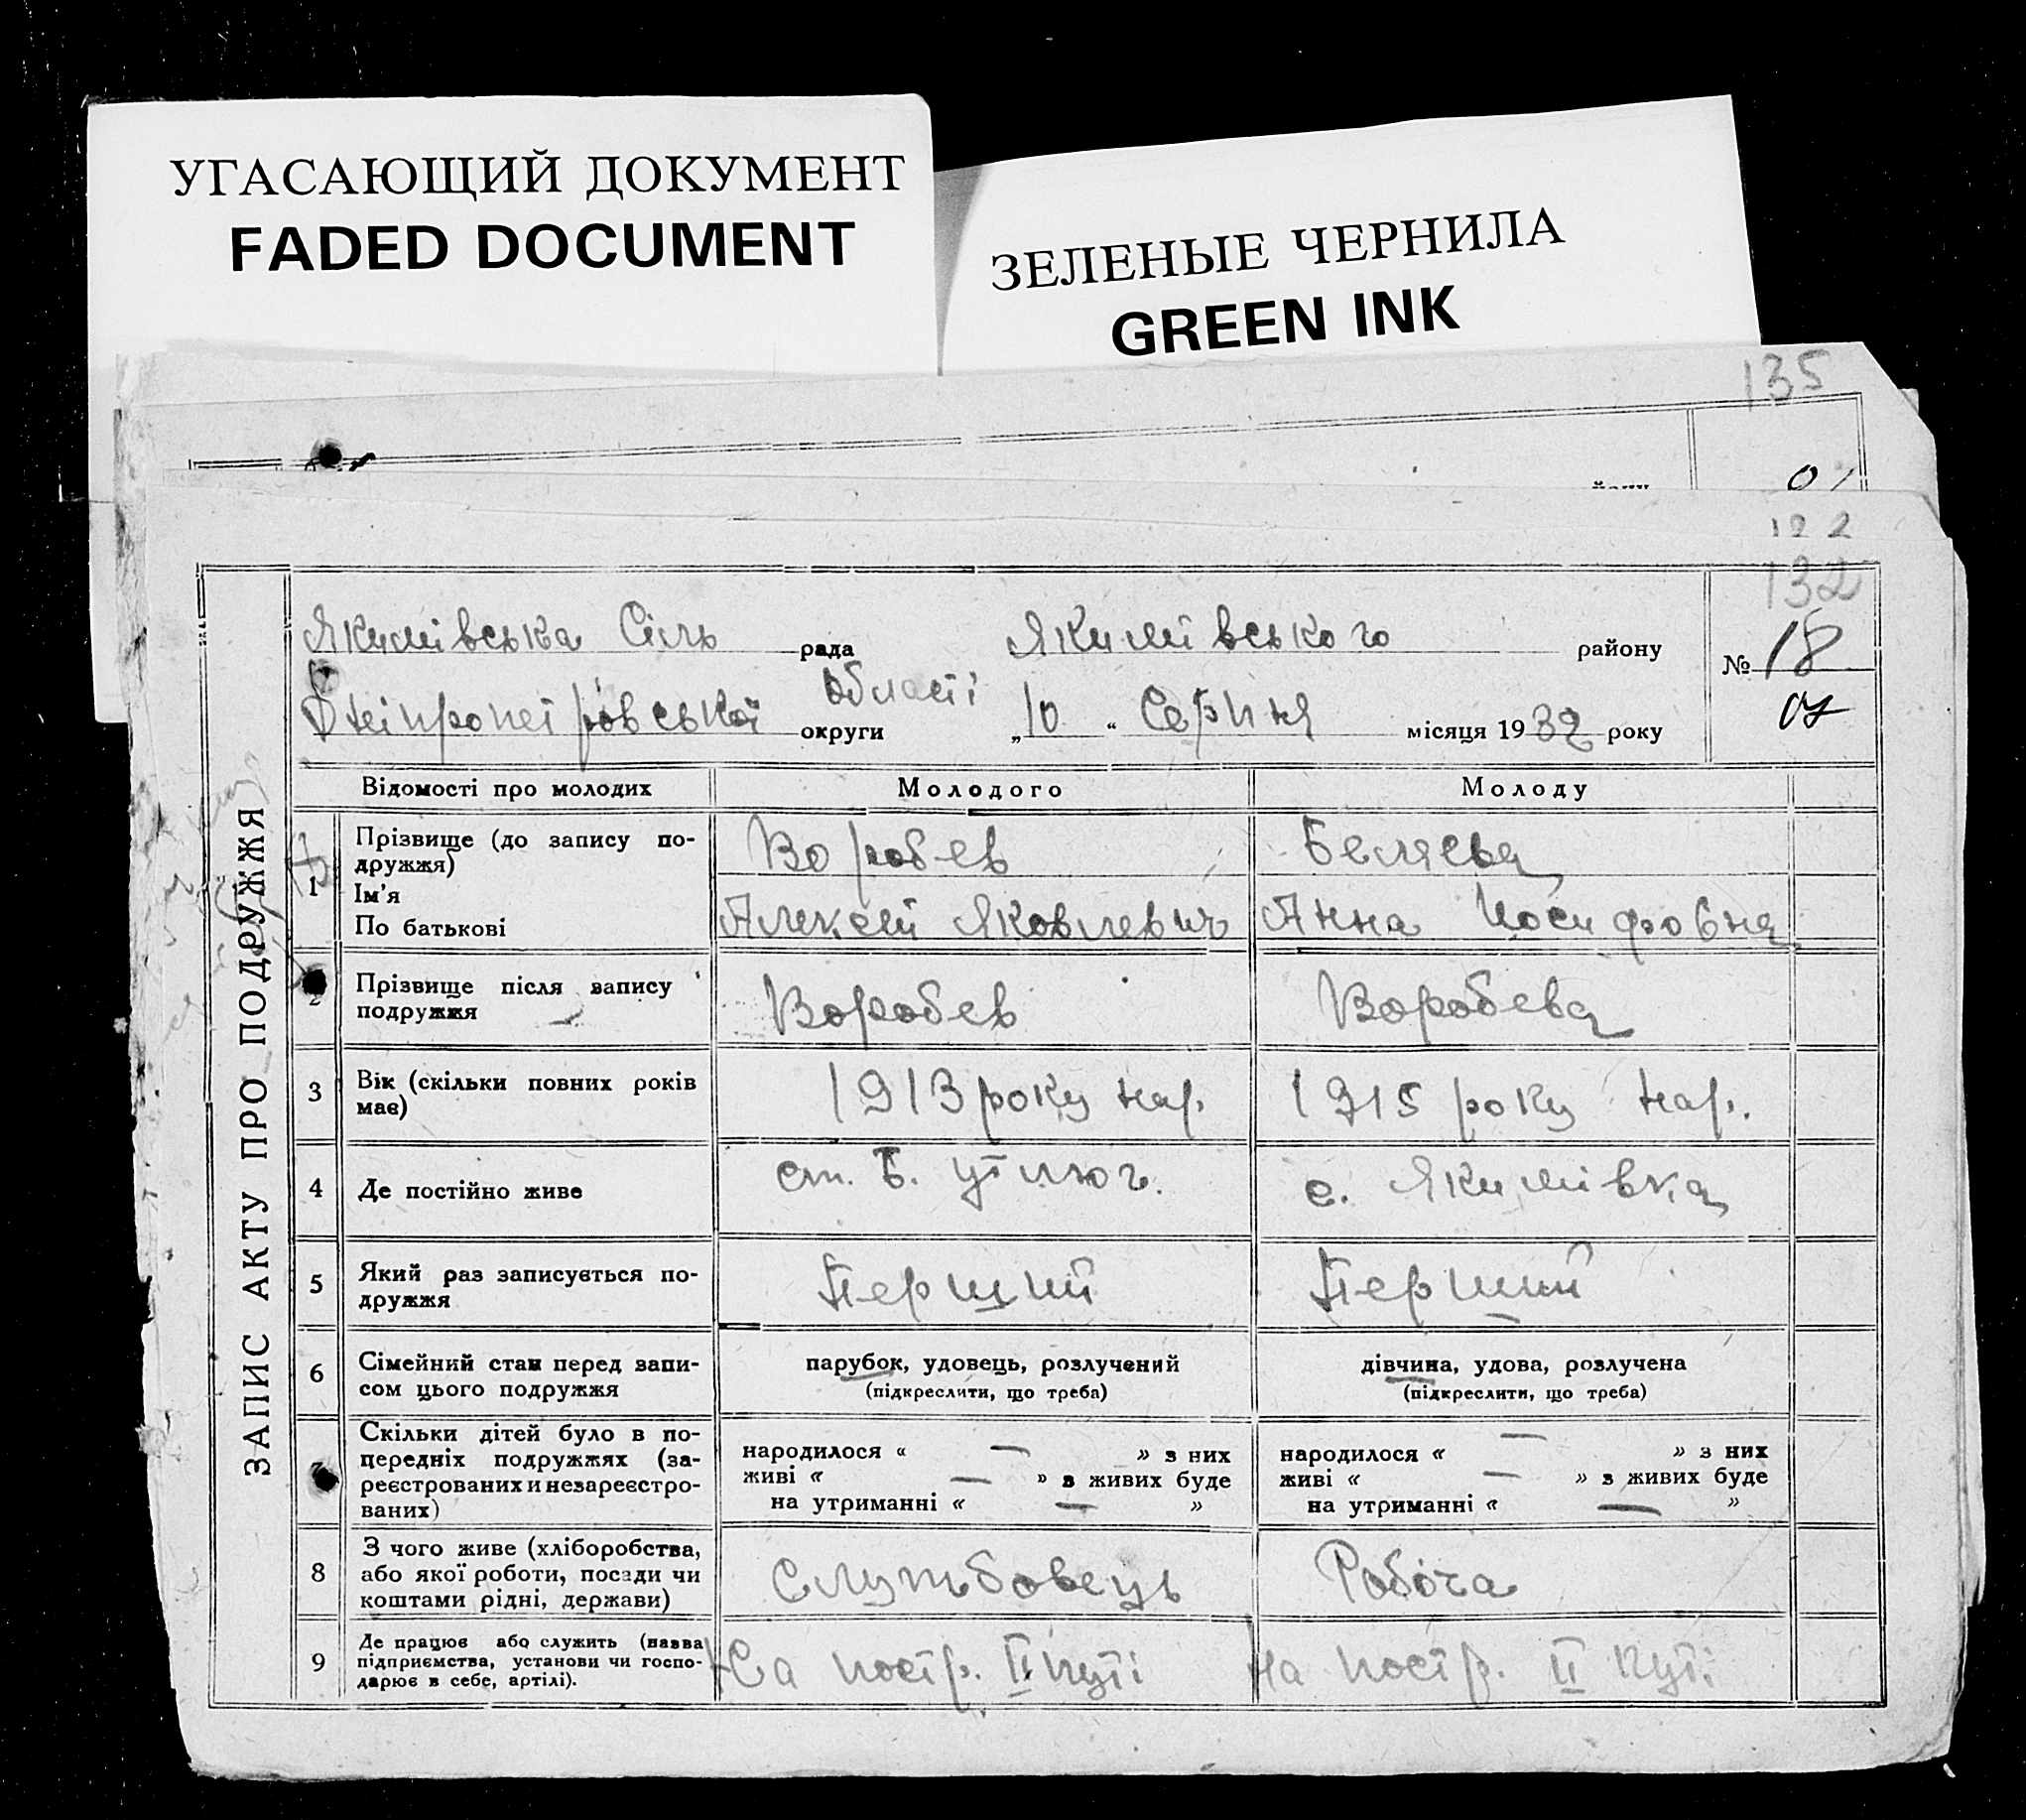 УГАСАЮЩИЙ ДОКУМЕНТ
FADED DOCUMENT
ЗЕЛЕНЫЕ ЧЕРНИЛА
GREEN INK
135
132
Якимівська Сіль рада Якимівського району № 18
Дніпропетровської області округи „10“ Серпня місяця 1932 року
ЗАПИС АКТУ ПРО ПОДРУЖЖЯ
Відомості про молодих Молодого Молоду
1 Прізвище (до запису по-
дружжя) Воробев Беляева
Ім'я
По батькові Алексей Яковлевич Анна Иосифовна
2 Прізвище після запису
подружжя Воробев Воробева
3 Вік (скільки повних років
має) 1913 року нар. 1915 року нар.
4 Де постійно живе ст. Б. Утлюг. с. Якимівка
5 Який раз записується по-
дружжя Перший Перший
6 Сімейний стан перед запи-
сом цього подружжя
парубок, удовець, розлучений
(підкреслити, що треба)
дівчина, удова, розлучена
(підкреслити, що треба)
Скільки дітей було в по-
передніх подружжях (за-
реєстрованих и незареєстро-
ваних)
народилося « — » з них
живі « — » з живих буде
на утриманні « — »
народилося « — » з них
живі « — » з живих буде
на утриманні « — »
8 З чого живе (хліборобства,
або якої роботи, посади чи
коштами рідні, держави)
Службовець Робоча
9 Де працює або служить (назва
підприємства, установи чи госпо-
дарює в себе, артілі).
На постр. II путі На постр. II путі